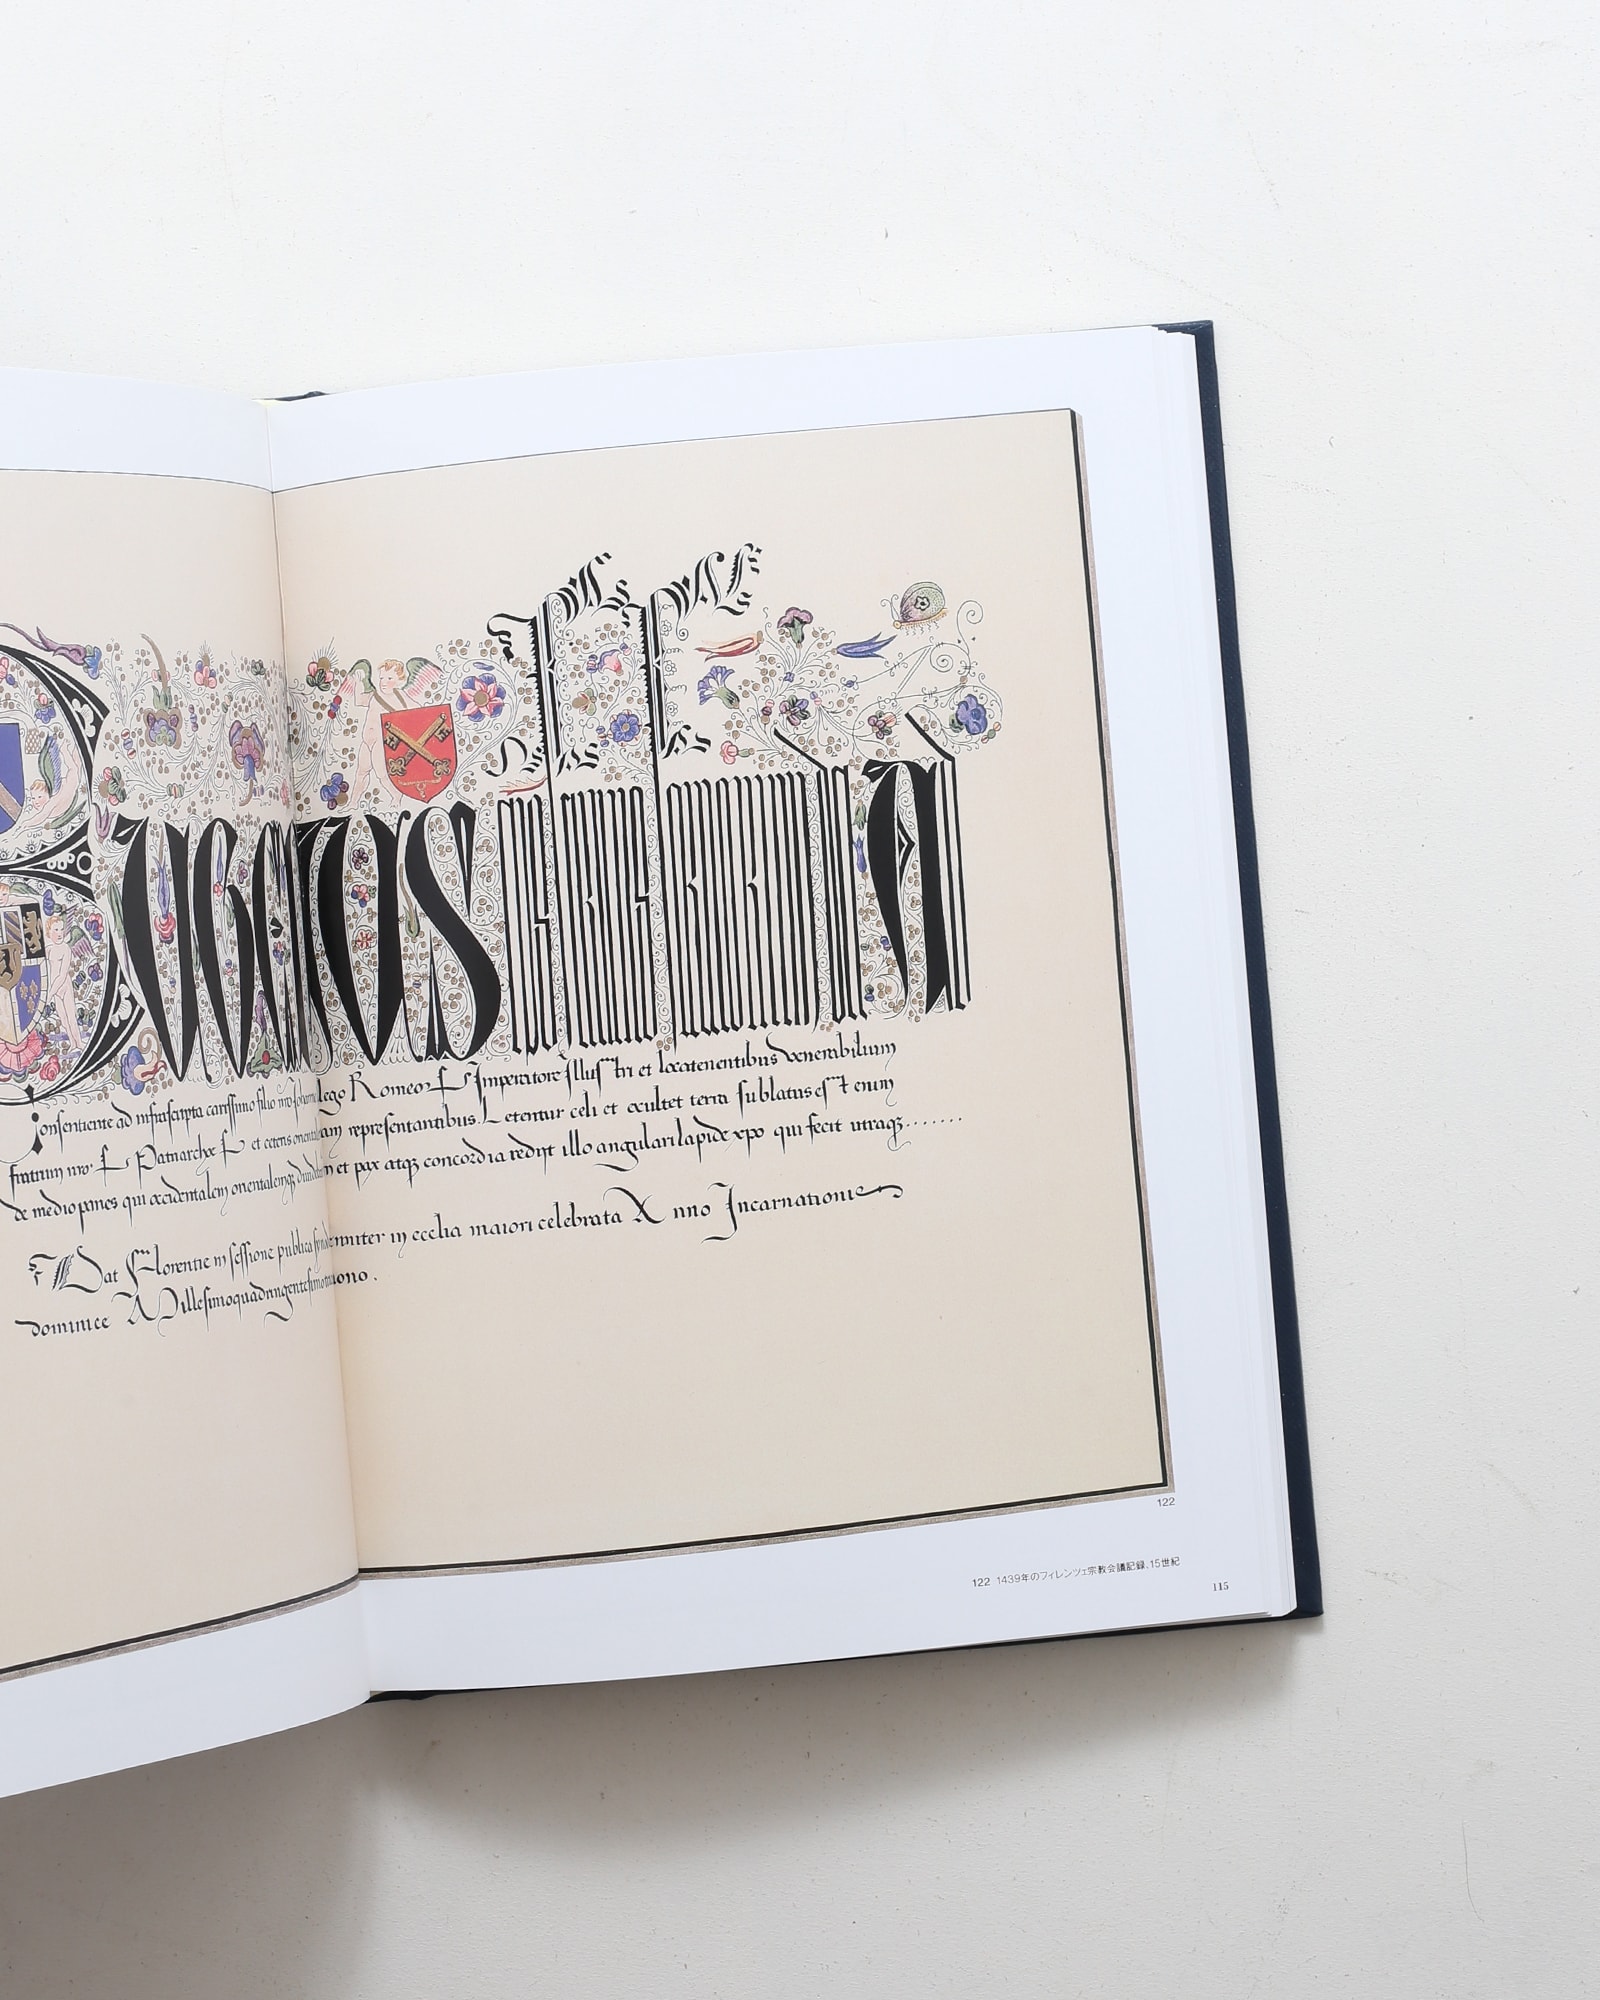 Eugenius
consentiente ad infrascripta carissimo filio nro Johanne lego Romeor Imperatore Illustri et locatenentibus venerabilium
fratrum nror Patriarchar et ceteris orientalem representantibus Letentur celi et exultet terra sublatus est enim
de medio paries qui occidentalem orientalemq dividebat et pax atq concordia redijt illo angulari lapide xpo qui fecit utraq.......
Dat Florentie in sessione publica synodali
nniter in ecclia maiori celebrata Anno Incarnationis
dominice Millesimoquadringentesimotricesimonono.
122
122 1439年のフィレンツェ宗教会議記録、15世紀
115